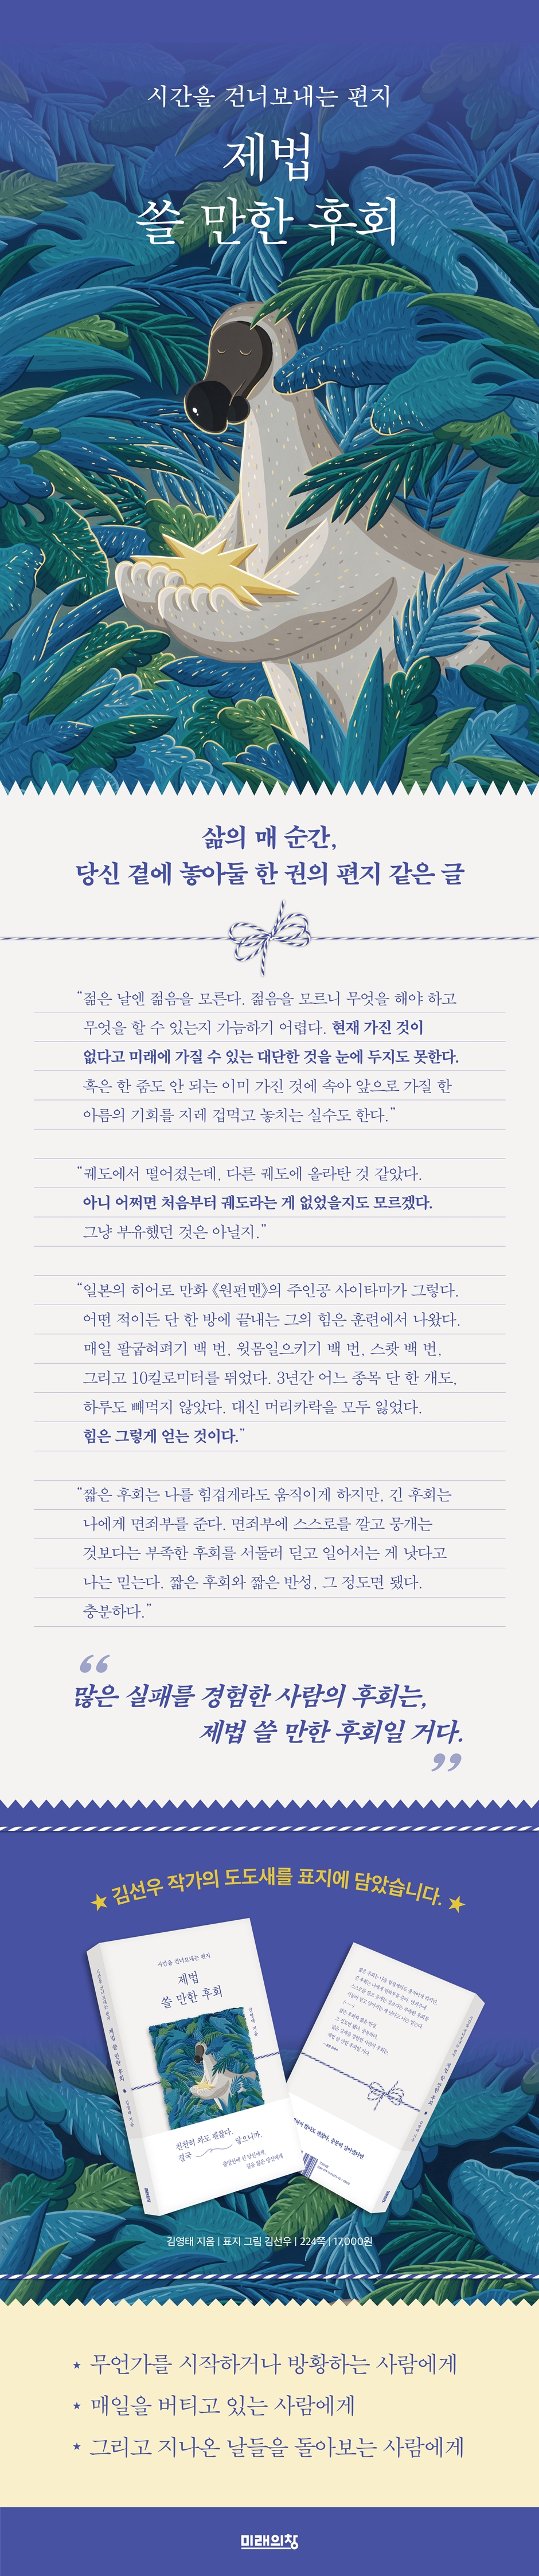 시간을 건너보내는 편지
제법
쓸 만한 후회
삶의 매 순간,
당신 곁에 놓아둘 한 권의 편지 같은 글
“젊은 날엔 젊음을 모른다. 젊음을 모르니 무엇을 해야 하고
무엇을 할 수 있는지 가늠하기 어렵다. 현재 가진 것이
없다고 미래에 가질 수 있는 대단한 것을 눈에 두지도 못한다.
혹은 한 줌도 안 되는 이미 가진 것에 속아 앞으로 가질 한
아름의 기회를 지레 겁먹고 놓치는 실수도 한다.”
“궤도에서 떨어졌는데, 다른 궤도에 올라탄 것 같았다.
아니 어쩌면 처음부터 궤도라는 게 없었을지도 모르겠다.
그냥 부유했던 것은 아닐지.”
“일본의 히어로 만화 《원펀맨》의 주인공 사이타마가 그렇다.
어떤 적이든 단 한 방에 끝내는 그의 힘은 훈련에서 나왔다.
매일 팔굽혀펴기 백 번, 윗몸일으키기 백 번, 스쾃 백 번,
그리고 10킬로미터를 뛰었다. 3년간 어느 종목 단 한 개도,
하루도 빼먹지 않았다. 대신 머리카락을 모두 잃었다.
힘은 그렇게 얻는 것이다.”
“짧은 후회는 나를 힘겹게라도 움직이게 하지만, 긴 후회는
나에게 면죄부를 준다. 면죄부에 스스로를 깔고 뭉개는
것보다는 부족한 후회를 서둘러 딛고 일어서는 게 낫다고
나는 믿는다. 짧은 후회와 짧은 반성, 그 정도면 됐다.
충분하다.”
“
많은 실패를 경험한 사람의 후회는,
제법 쓸 만한 후회일 거다.
”
★ 김선우 작가의 도도새를 표지에 담았습니다. ★
시간을 건너보내는 편지
제법
쓸 만한 후회
김영태 지음
천천히 와도 괜찮다.
결국 닿으니까.
김영태 지음 | 표지 그림 김선우 | 224쪽 | 17,000원
★ 무언가를 시작하거나 방황하는 사람에게
★ 매일을 버티고 있는 사람에게
★ 그리고 지나온 날들을 돌아보는 사람에게
미래의창